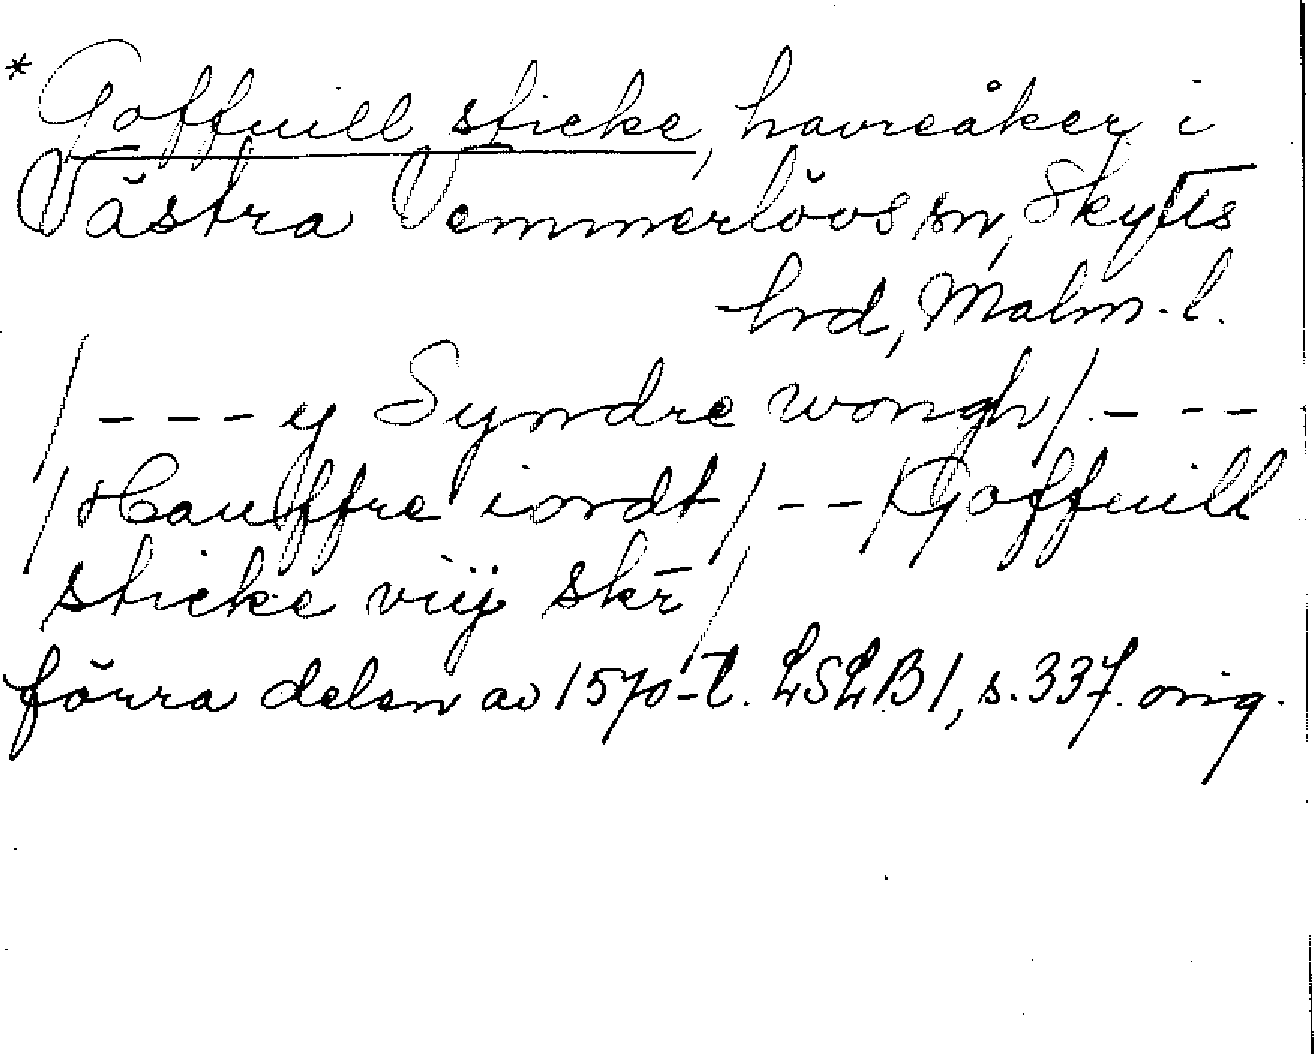 * Goffuill sticke, havreåker i
Västra Vemmerlövs sn, Skytts
hrd, Malm. l.
/ - - - y Syndre wongh / - - -
/ Hauffre iordt / - - / Goffuill
sticke viij skr̄ /
förra delen av 1570-t. LSLB 1, s. 337. orig.